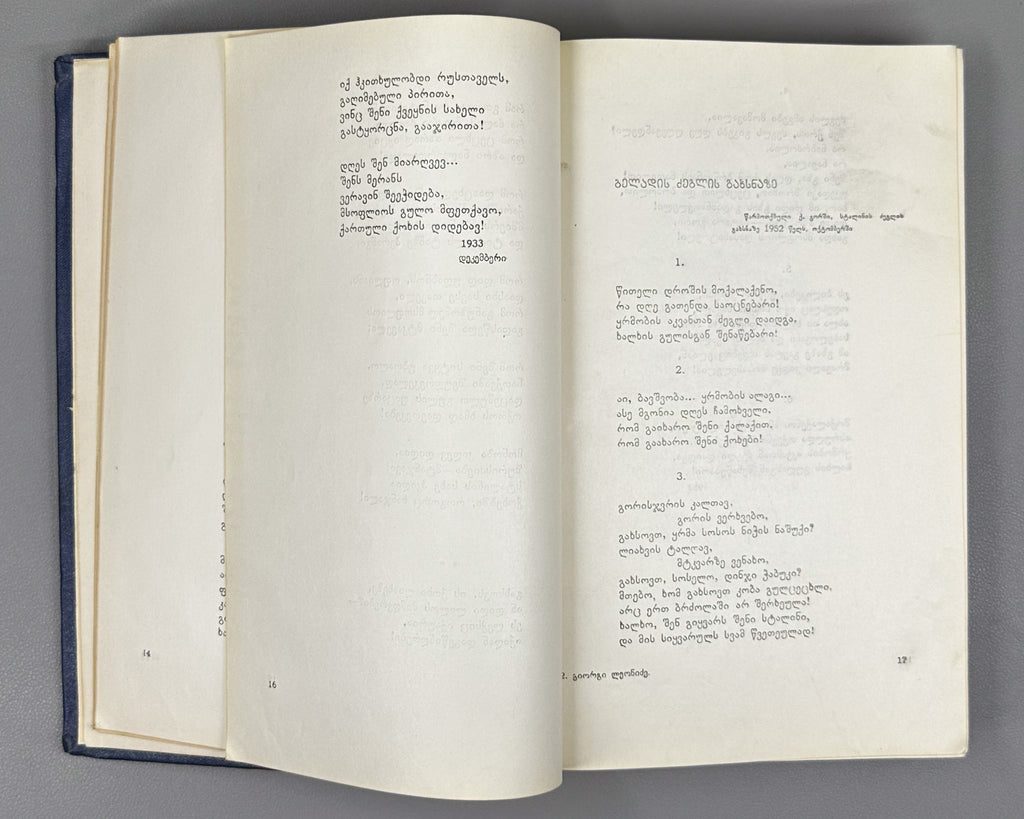 იქ ჰკითხულობდი რუსთაველს,
გაღიმებული პირითა,
ვინც შენი ქვეყნის სახელი
გასტყორცნა, გააჯირითა!
დღეს შენ მიარღვევ...
შენს მერანს
ვერავინ შეეჭიდება,
მსოფლიოს გულო მფეთქავო,
ქართული ქოხის დიდებავ!
1933
დეკემბერი
16
14
ბელადის ძეგლის გახსნაზე
წარმოთქმული ქ. გორში, სტალინის ძეგლის
გახსნაზე 1952 წელს. ოქტომბერში
1.
წითელი დროშის მოქალაქენო,
რა დღე გათენდა საოცნებარი!
ყრმობის აკვანთან ძეგლი დაიდგა,
ხალხის გულისგან შენაწებარი!
2.
აი, ბავშვობა... ყრმობის ალაგი...
ასე მგონია დღეს ჩამოხველი,
რომ გაიხარო შენი ქალაქით,
რომ გაახარო შენი ქოხები!
3.
გორისჯვრის კალთავ,
გორის ვერხვებო,
გახსოვთ, ყრმა სოსოს ნიჭის ნაშუქი?
ლიახვის ტალღავ,
მტკვარზე ვენახო,
გახსოვთ, სოსელო, დინჯი ჭაბუკი?
მთებო, ხომ გახსოვთ კობა გულცეცხლი,
არც ერთ ბრძოლაში არ შერხეულა!
ხალხო, შენ გიყვარს შენი სტალინი,
და მის სიყვარულს სვამ წვეთეულად!
2. გიორგი ლეონიძე.
17